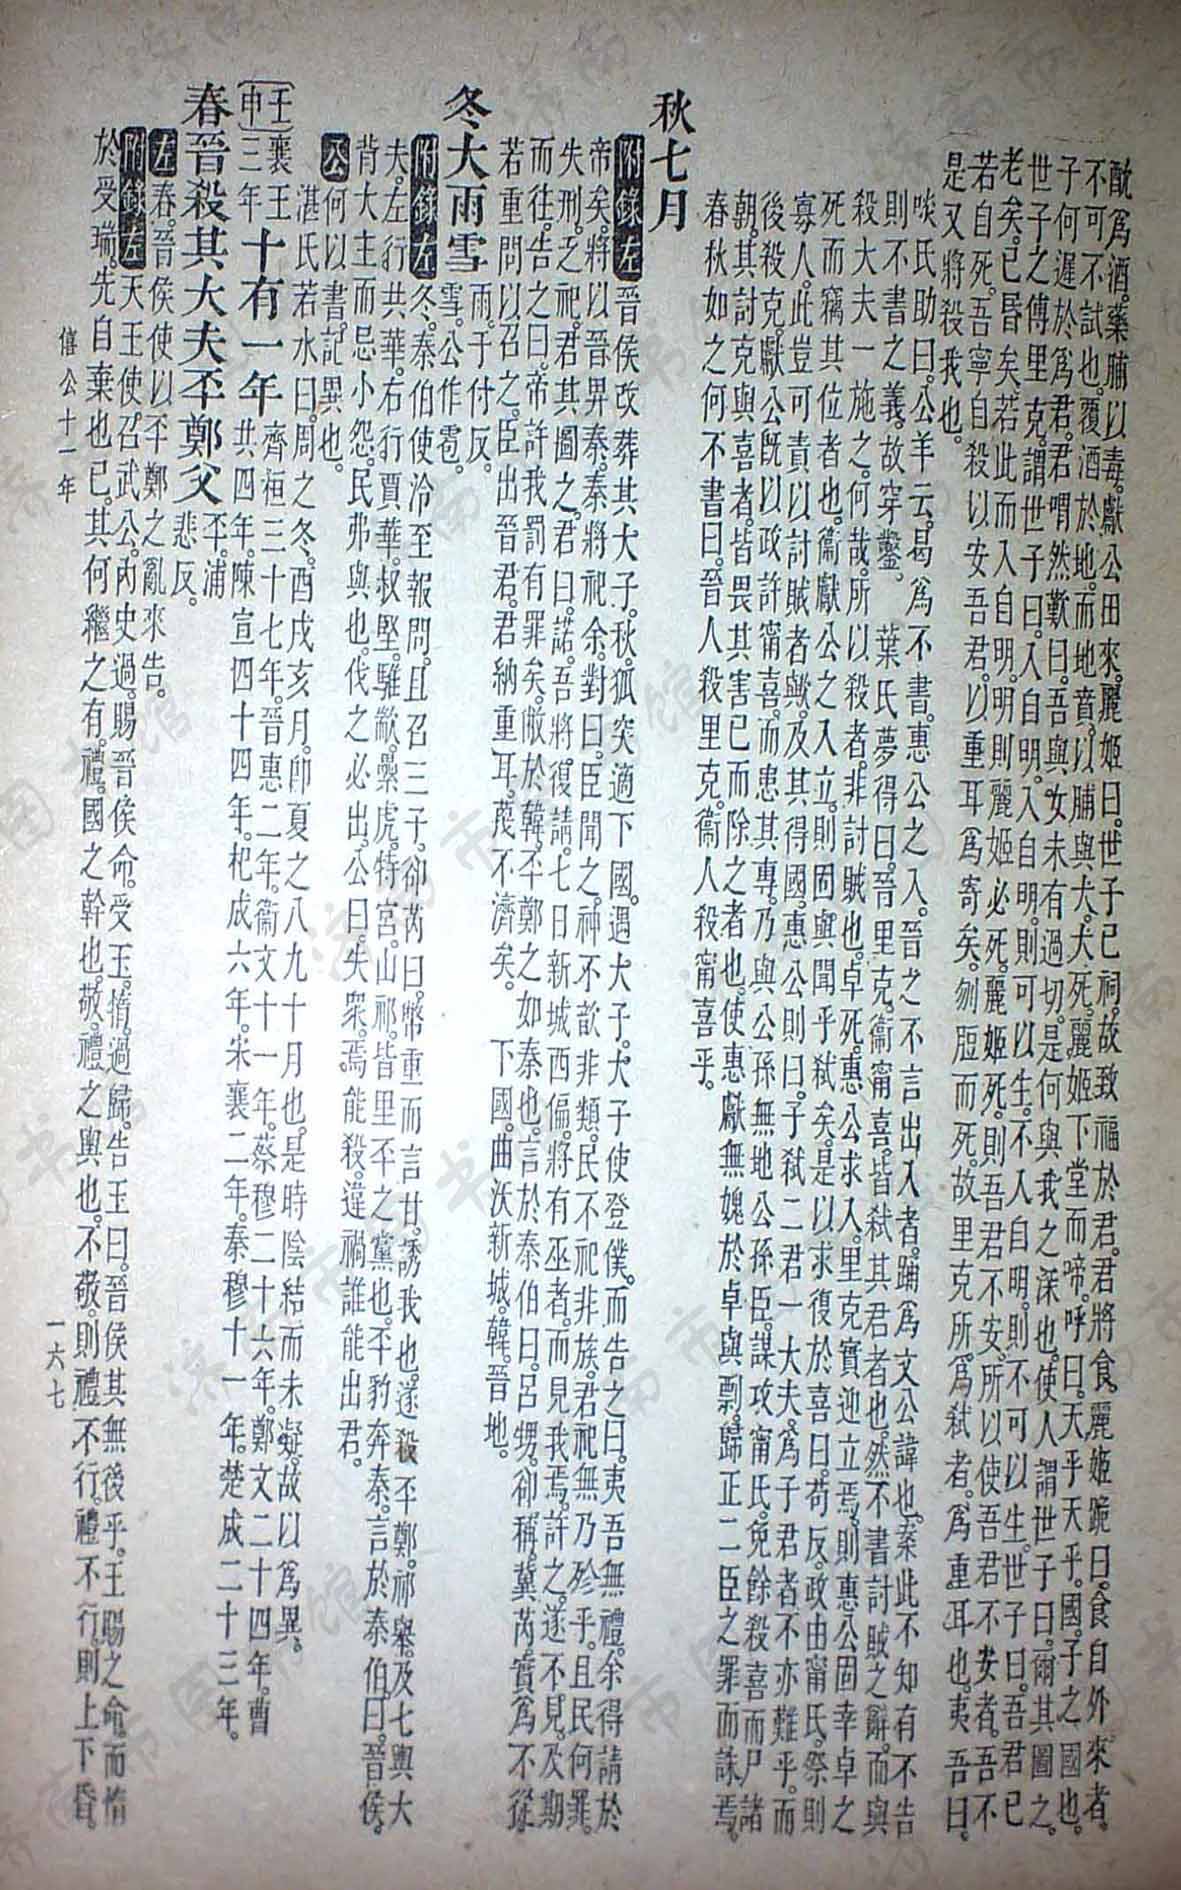 酖爲酒。藥脯以毒。獻公田來。麗姬曰。世子已祠。故致福於君。君將食。麗姬跪曰。食自外來者。
不可不試也。覆酒於地。而地音。以脯與犬。犬死。麗姬下堂而啼。呼曰。天乎天乎。國子之國也。
子何遲於爲君。君喟然歎曰。吾與女未有過切。是何與我之深也。使人謂世子曰。爾其圖之。
世子之傅里克。謂世子曰。入自明。入自明。則可以生。不入自明。則不可以生。世子曰。吾君已
老矣。已昏矣。若此而入自明。明則麗姬必死。麗姬死。則吾君不安。所以使吾君不安者。吾不
若自死。吾寧自殺以安吾君。以重耳爲寄矣。刎脰而死。故里克所爲弑者。爲重耳也。夷吾曰。
是又將殺我也。
啖氏助曰。公羊云。曷爲不書。惠公之入。晉之不言出入者。踊爲文公諱也。案此不知有不告
則不書之義。故穿鑿。 葉氏夢得曰。晉里克。衞甯喜。皆弒其君者也。然不書討賊之辭。而與
殺大夫一施之。何哉。所以殺者。非討賊也。卓死。惠公求入。里克實迎立焉。則惠公固幸卓之
死而竊其位者也。衞獻公之入立。則固與聞乎弒矣。是以求復於喜曰。苟反。政由甯氏。祭則
寡人。此豈可責以討賊者歟。及其得國。惠公則曰。子弒二君一大夫。爲子君者不亦難乎。而
後殺克。獻公旣以政許甯喜。而患其專。乃與公孫無地公孫臣。謀攻甯氏。免餘殺喜而尸諸
朝。其討克與喜者。皆畏其害已而除之者也。使惠獻無媿於卓與剽。歸正二臣之罪而誅焉。
春秋如之何不書曰。晉人殺里克。衞人殺甯喜乎。
秋七月
附錄左 晉侯改葬其大子。秋。狐突適下國。遇大子。大子使登僕。而告之曰。夷吾無禮。余得請於
帝矣。將以晉畀秦。秦將祀余。對曰。臣聞之。神不歆非類。民不祀非族。君祀無乃殄乎。且民何罪。
失刑。乏祀。君其圖之。君曰。諾。吾將復請。七日新城西偏。將有巫者。而見我焉。許之。遂不見。及期
而往。告之曰。帝許我罰有罪矣。敝於韓。 丕鄭之如秦也。言於秦伯曰。呂甥。卻稱。冀芮。實爲不從。
若重問以召之。臣出晉君。君納重耳。蔑不濟矣。 下國。曲沃新城。韓。晉地。
冬大雨雪 雨。于付反。
雪。公作雹。
附錄左 冬。秦伯使泠至報問。且召三子。卻芮曰。幣重而言甘。誘我也。遂殺丕鄭。祁舉。及七輿大
夫。左行共華。右行賈華。叔堅。騅歂。纍虎。特宮。山祁。皆里丕之黨也。丕豹奔秦。言於秦伯曰。晉侯。
背大主而忌小怨。民弗與也。伐之必出。公曰。失衆。焉能殺。違禍誰能出君。
公 何以書。記異也。
湛氏若水曰。周之冬。酉戌亥月。卽夏之八九十月也。是時陰結而未凝。故以爲異。
〔壬申〕襄王三年 十有一年 齊桓三十七年。晉惠二年。衞文十一年。蔡穆二十六年。鄭文二十四年。曹
共四年。陳宣四十四年。杞成六年。宋襄二年。秦穆十一年。楚成二十三年。
春晉殺其大夫丕鄭父 丕。浦
悲反。
左 春。晉侯使以丕鄭之亂來告。
附錄左 天王使召武公。內史過。賜晉侯命。受玉。惰。過歸。告王曰。晉侯其無後乎。王賜之命。而惰
於受瑞。先自棄也已。其何繼之有。禮。國之幹也。敬。禮之輿也。不敬。則禮不行。禮不行。則上下昏。
僖公十一年
一六七